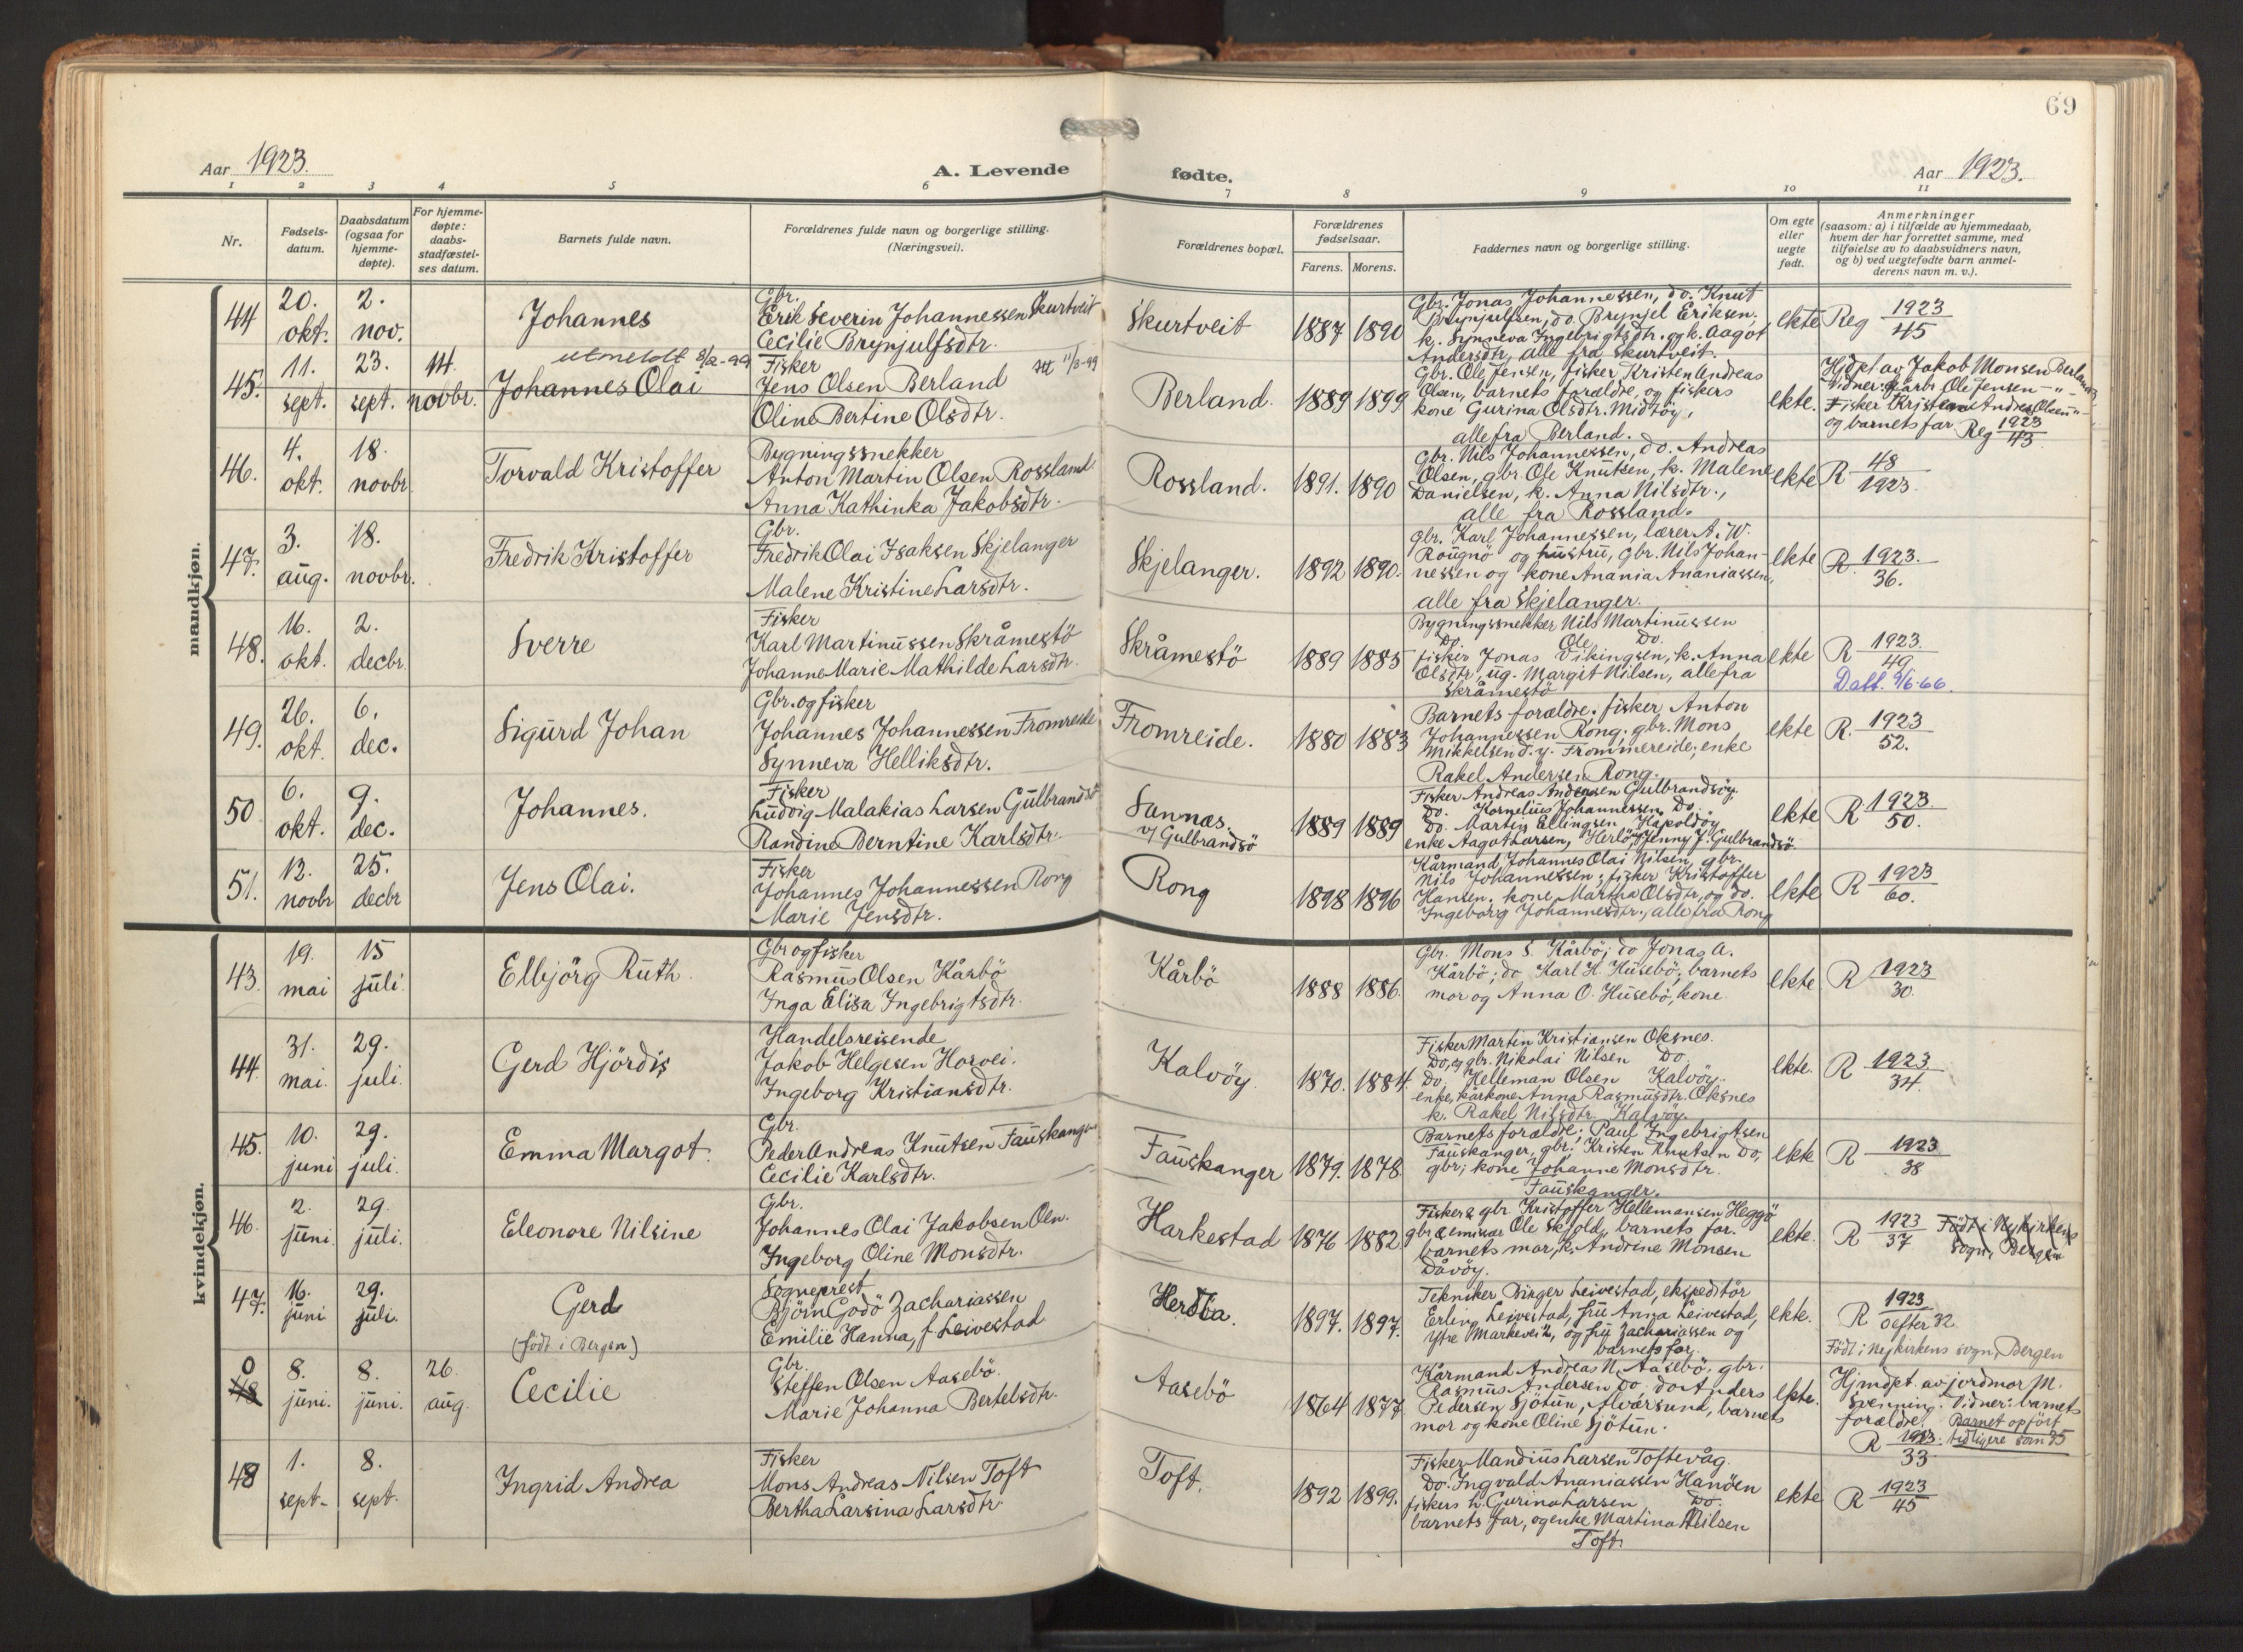 69
Aar 1923.
A. Levende fødte.
Aar 1923.
1 2 3 4 5 6 7 8 9 10 11
Nr.
Fødsels-
datum.
Daabsdatum
(ogsaa for
hjemme-
døpte).
For hjemme-
døpte:
daabs-
stadfæstel-
ses datum.
Barnets fulde navn.
Forældrenes fulde navn og borgerlige stilling.
(Næringsvei).
Forældrenes bopæl.
Forældrenes
fødselsaar.
Farens. Morens.
Faddernes navn og borgerlige stilling.
Om egte
eller
uegte
født.
Anmerkninger
(saasom: a) i tilfælde av hjemmedaab,
hvem der har forrettet samme, med
tilføielse av to daabsvidners navn,
og b) ved uegtefødte barn anmel-
derens navn m. v.).
mandkjøn.
44
20.
okt.
2.
nov.
Johannes
Gbr.
Erik Severin Johannessen Skurtveit
Cecilie Brynjulfsdtr.
Skurtveit
1887 1890
Gbr. Jonas Johannessen, do. Knut
Brynjulfsen, do. Brynjel Eriksen.
k. Synneva Ingebrigtsdtr. og k. Aagot
Andersdtr, alle fra Skurtveit.
ekte
Reg 1923
45
45.
11.
sept.
23.
sept.
14.
novbr.
utmeldt 8/2-99
Johannes Olai
Fisker
Jens Olsen Berland
11/3-99
Oline Bertine Olsdtr.
Berland.
1889 1899
Gbr. Ole Jensen, fisker Kristen Andreas
Olsen, barnets forældre, og fiskers
kone Gurina Olsdtr. Midtöy,
alle fra Berland.
ekte.
Hjdpt av Jakob Monsen Berland
Vidner: Gårbr. Ole Jensen -"-
Fisker Kristen Andreas Olsen -"-
og barnets far Reg 1923
43
46.
4.
okt.
18.
novbr.
Torvald Kristoffer
Bygningssnekker
Anton Martin Olsen Rossland
Anna Kathinka Jakobsdtr.
Rossland.
1891. 1890
Gbr. Nils Johannessen, do. Andreas
Olsen, gbr. Ole Knutsen, k. Malene
Danielsen, k. Anna Nilsdtr.,
alle fra Rossland.
ekte
R 48
1923
47.
3.
aug.
18.
novbr.
Fredrik Kristoffer
Gbr.
Fredrik Olai Isaksen Skjelanger
Malene Kristine Larsdtr.
Skjelanger.
1892 1890.
gbr. Karl Johannessen, lærer A. W.
Rougnö og hustru, gbr. Nils Johan-
nessen og kone Anania Ananiassen,
alle fra Skjelanger.
ekte
R. 1923.
36.
48.
16.
okt.
2.
decbr.
Sverre
Fisker
Karl Martinussen Skråmestö
Johanne Marie Mathilde Larsdtr.
Skråmestö
1889 1885
Bygningssnekker Nils Martinussen
Do. Ole Do.
fisker Jonas Vikingsen, k. Anna
Olsdtr, ug. Margit Nilsen, alle fra
Skråmestö
ekte
R 1923.
49
Datt. 9/6.66.
49.
26.
okt.
6.
dec.
Sigurd Johan
Gbr. og fisker
Johannes Johannessen Fromreide
Synneva Helliksdtr.
Fromreide.
1880 1883
Barnets forældre; fisker Anton
Johannessen Rong; gbr. Mons
Mikkelsen d.y. Frommereide, enke
Rakel Andersen Rong.
ekte
R. 1923
52.
50
6.
okt.
9.
dec.
Johannes.
Fisker
Ludvig Malakias Larsen Gulbrandsö
Randine Berntine Karlsdtr.
Sannas.
v/ Gulbrandsö
1889 1889
Fisker Andreas Andersen Gulbrandsöy.
Do. Kornelius Johannessen Do.
Do. Martin Ellingsen Håpoldöy
enke Aagot Larsen, Herlö og Jenny J. Gulbrandsö.
ekte
R 1923.
50.
51.
12.
novbr
25.
decbr
Jens Olai.
Fisker
Johannes Johannessen Rong
Marie Jensdtr.
Rong
1898 1896
Kårmand Johannes Olai Nilsen, gbr.
Nils Johannessen; fisker Kristoffer
Hansen, kone Martha Olsdtr, og do.
Ingeborg Johannesdtr., alle fra Rong
ekte
R 1923
60.
kvindekjøn.
43.
19.
mai
15
juli.
Elbjörg Ruth.
Gbr og fisker
Rasmus Olsen Kårbö
Inga Elisa Ingebrigtsdtr.
Kårbö
1888 1886.
Gbr. Mons S. Kårbö; do Jonas A.
Kårbö; do Karl H. Husebö; barnets
mor og Anna O. Husebö, kone
ekte
R 1923
30.
44
31.
mai.
29.
juli.
Gerd Hjördis
Handelsreisende
Jakob Helgesen Horvei.
Ingeborg Kristiansdtr.
Kalvöy.
1870. 1884.
Fisker Martin Kristiansen Oksnes.
Do, og gbr. Nikolai Nilsen Do.
Do. Helleman Olsen Kalvöy.
enke, kårkone Anna Rasmusdtr. Oksnes
k. Rakel Nilsdtr. Kalvöy.
ekte.
R 1923
34
45.
10.
juni
29.
juli.
Emma Margot.
Gbr.
Peder Andreas Knutsen Fauskanger
Cecilie Karlsdtr.
Fauskanger
1879. 1878
Barnets forældre; Paul Ingebrigtsen
Fauskanger, gbr; Kristen Knutsen Do,
gbr; kone Johanne Monsdtr.
Fauskanger.
ekte
R 1923
38
46.
2.
juni.
29.
juli.
Eleonore Nilsine
Gbr.
Johannes Olai Jakobsen Oen.
Ingeborg Oline Monsdtr.
Harkestad
1876 1882
Fisker & gbr Kristoffer Hellemansen Heggö
gbr & emissær Ole Skjold, barnets far.
barnets mor, k. Andrine Monsen
Dåvöy.
ekte.
R 1923
37
Födt i Nykirkens
sogn, Bergen
47.
16.
juni
29.
juli.
Gerd
(födt i Bergen)
Sogneprest
Björn Godö Zachariassen
Emilie Hanna, f. Leivestad
Herdla.
1897. 1897.
Tekniker Birger Leivestad, ekspeditör
Erling Leivestad, fru Anna Leivestad,
Ytre Markevei 2, og fru Zachariassen og
barnets far.
ekte.
R 1923
o efter 32
Födt i Nykirkens sogn, Bergen
0
48
8.
juni.
8.
juni.
26.
aug.
Cecilie
Gbr.
Steffen Olsen Aasebö.
Marie Johanna Bertelsdtr.
Aasebö
1864 1877
Kårmand Andreas N. Aasebö, gbr.
Rasmus Andersen Do, do Anders
Pedersen Sjötun, Alvérsund, barnets
mor og kone Oline Sjötun.
ekte.
Hjmdpt. av jordmor M.
Svenning. Vidner: barnets
forældre. Barnet opfört
R 1923. tidligere som 35
33
48
1.
sept.
8.
sept.
Ingrid Andrea
Fisker
Mons Andreas Nilsen Toft
Bertha Larsina Larsdtr.
Toft.
1892 1899.
Fisker Mandius Larsen Toftevåg.
Do. Ingvald Ananiassen Hanöen
fiskers h. Gurina Larsen Do.
barnets far, og enke Martina Nilsen
Toft.
ekte
R 1923
45